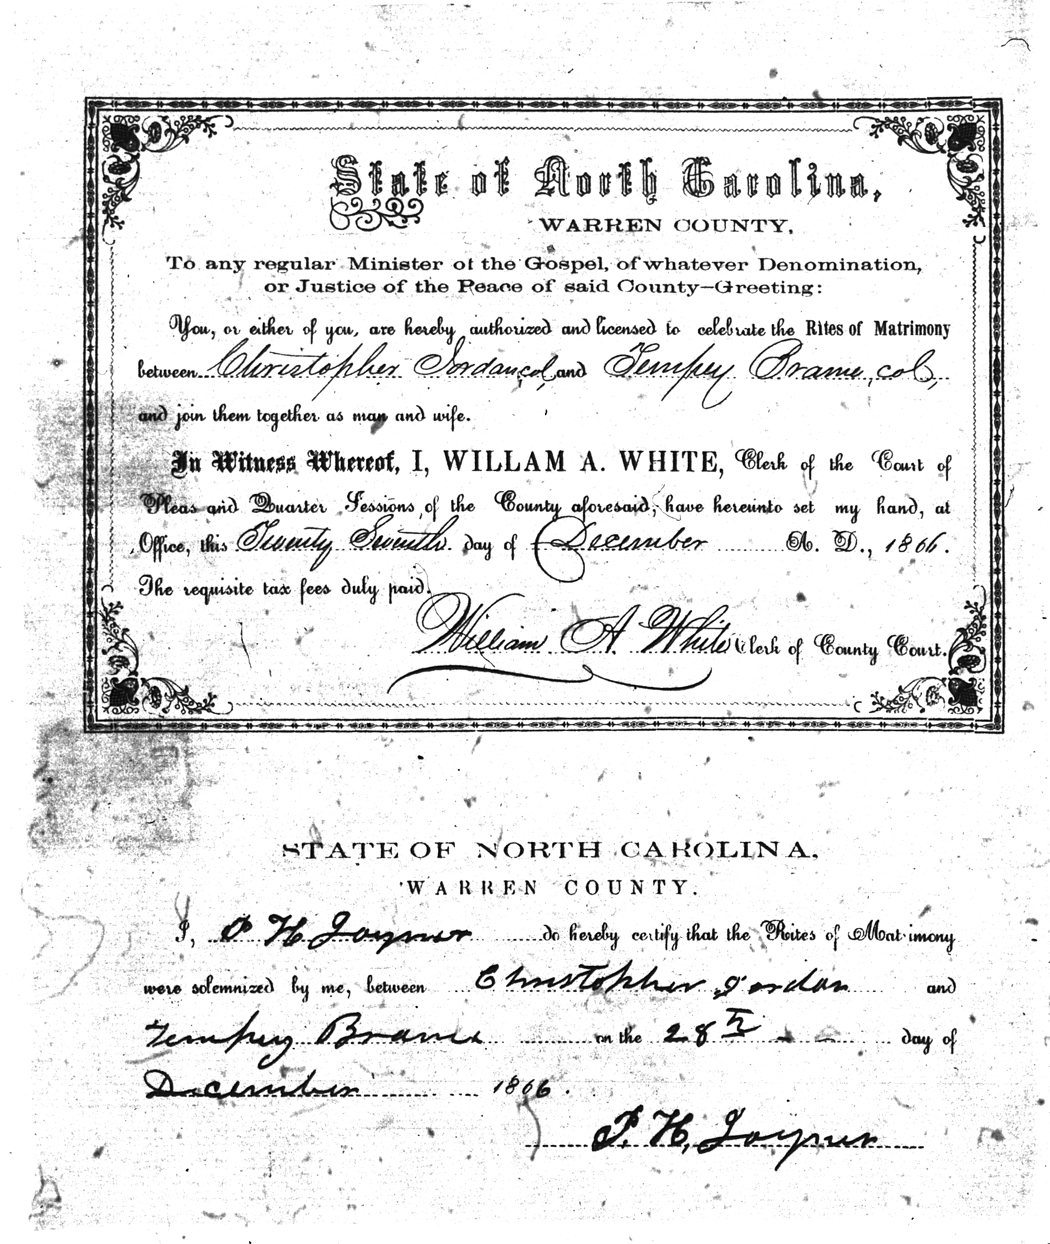 State of North Carolina,
WARREN COUNTY.
To any regular Minister of the Gospel, of whatever Denomination,
or Justice of the Peace of said County—Greeting:
You, or either of you, are hereby authorized and licensed to celebrate the Rites of Matrimony
between Christopher Jordan, col, and Tempey Brame, col,
and join them together as man and wife.
In Witness Whereof, I, WILLAM A. WHITE, Clerk of the Court of
Pleas and Quarter Sessions, of the County aforesaid, have hereunto set my hand, at
Office, this Twenty Seventh day of December A. D., 1866.
The requisite tax fees duly paid.
William A White Clerk of County Court.
STATE OF NORTH CAROLINA,
WARREN COUNTY.
I, P H Joyner do hereby certify that the Rites of Matrimony
were solemnized by me, between Christopher Jordan and
Tempey Brame on the 28th day of
December 1866.
P. H. Joyner